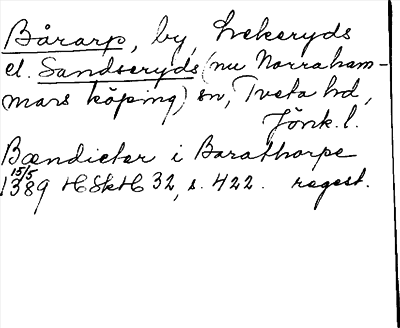 Bårarp, by, Lekeryds
el. Sandseryds (nu Norraham-
mars köping) sn, Tveta hd,
Jönk. l.
Bændicter i Barathorpe
15/5
1389 HSkH 32, s. 422. regest.